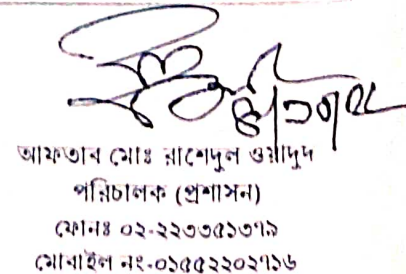 আফতাব মোঃ রাশেদুল ওয়াদুদ
পরিচালক (প্রশাসন)
ফোনঃ ০২-২২৩৩৫১৩৭৯
মোবাইল নং-০১৫৫২২০২৭১৬